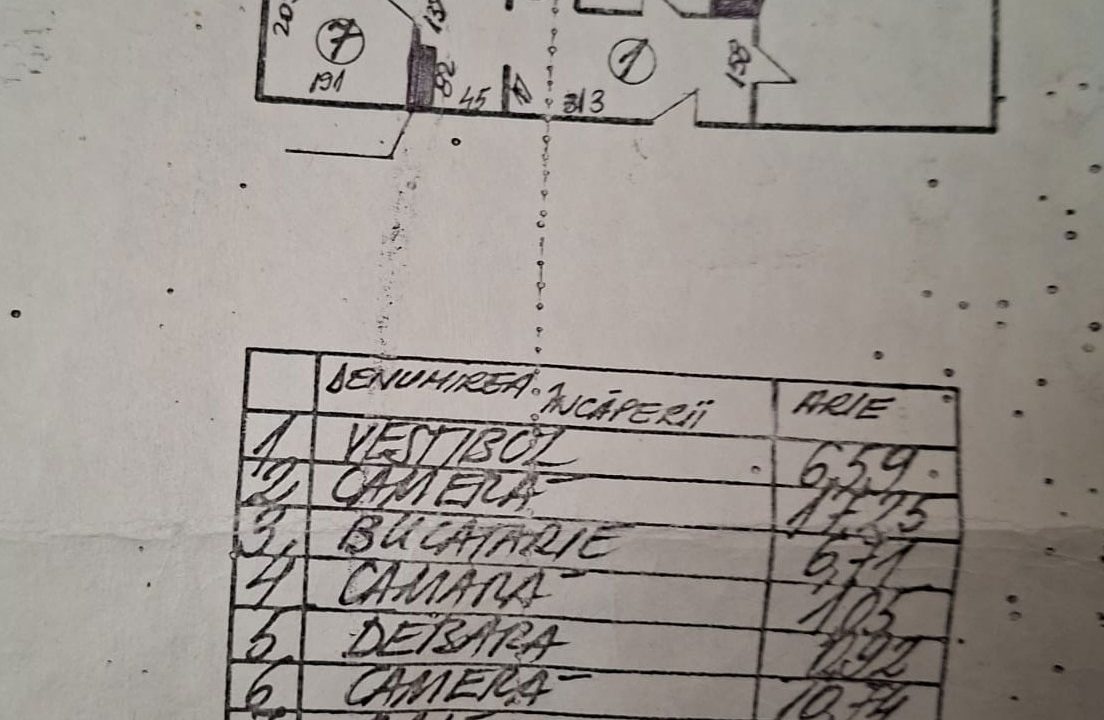 203
7
191
82
45
1
313
DENUMIREA ÎNCĂPERII ARIE
1, VESTIBOL 6,59
2, CAMERĂ 17,25
3, BUCATARIE 6,71
4 CAMARĂ 1,05
5, DEBARA 0,92
6, CAMERĂ 10,74